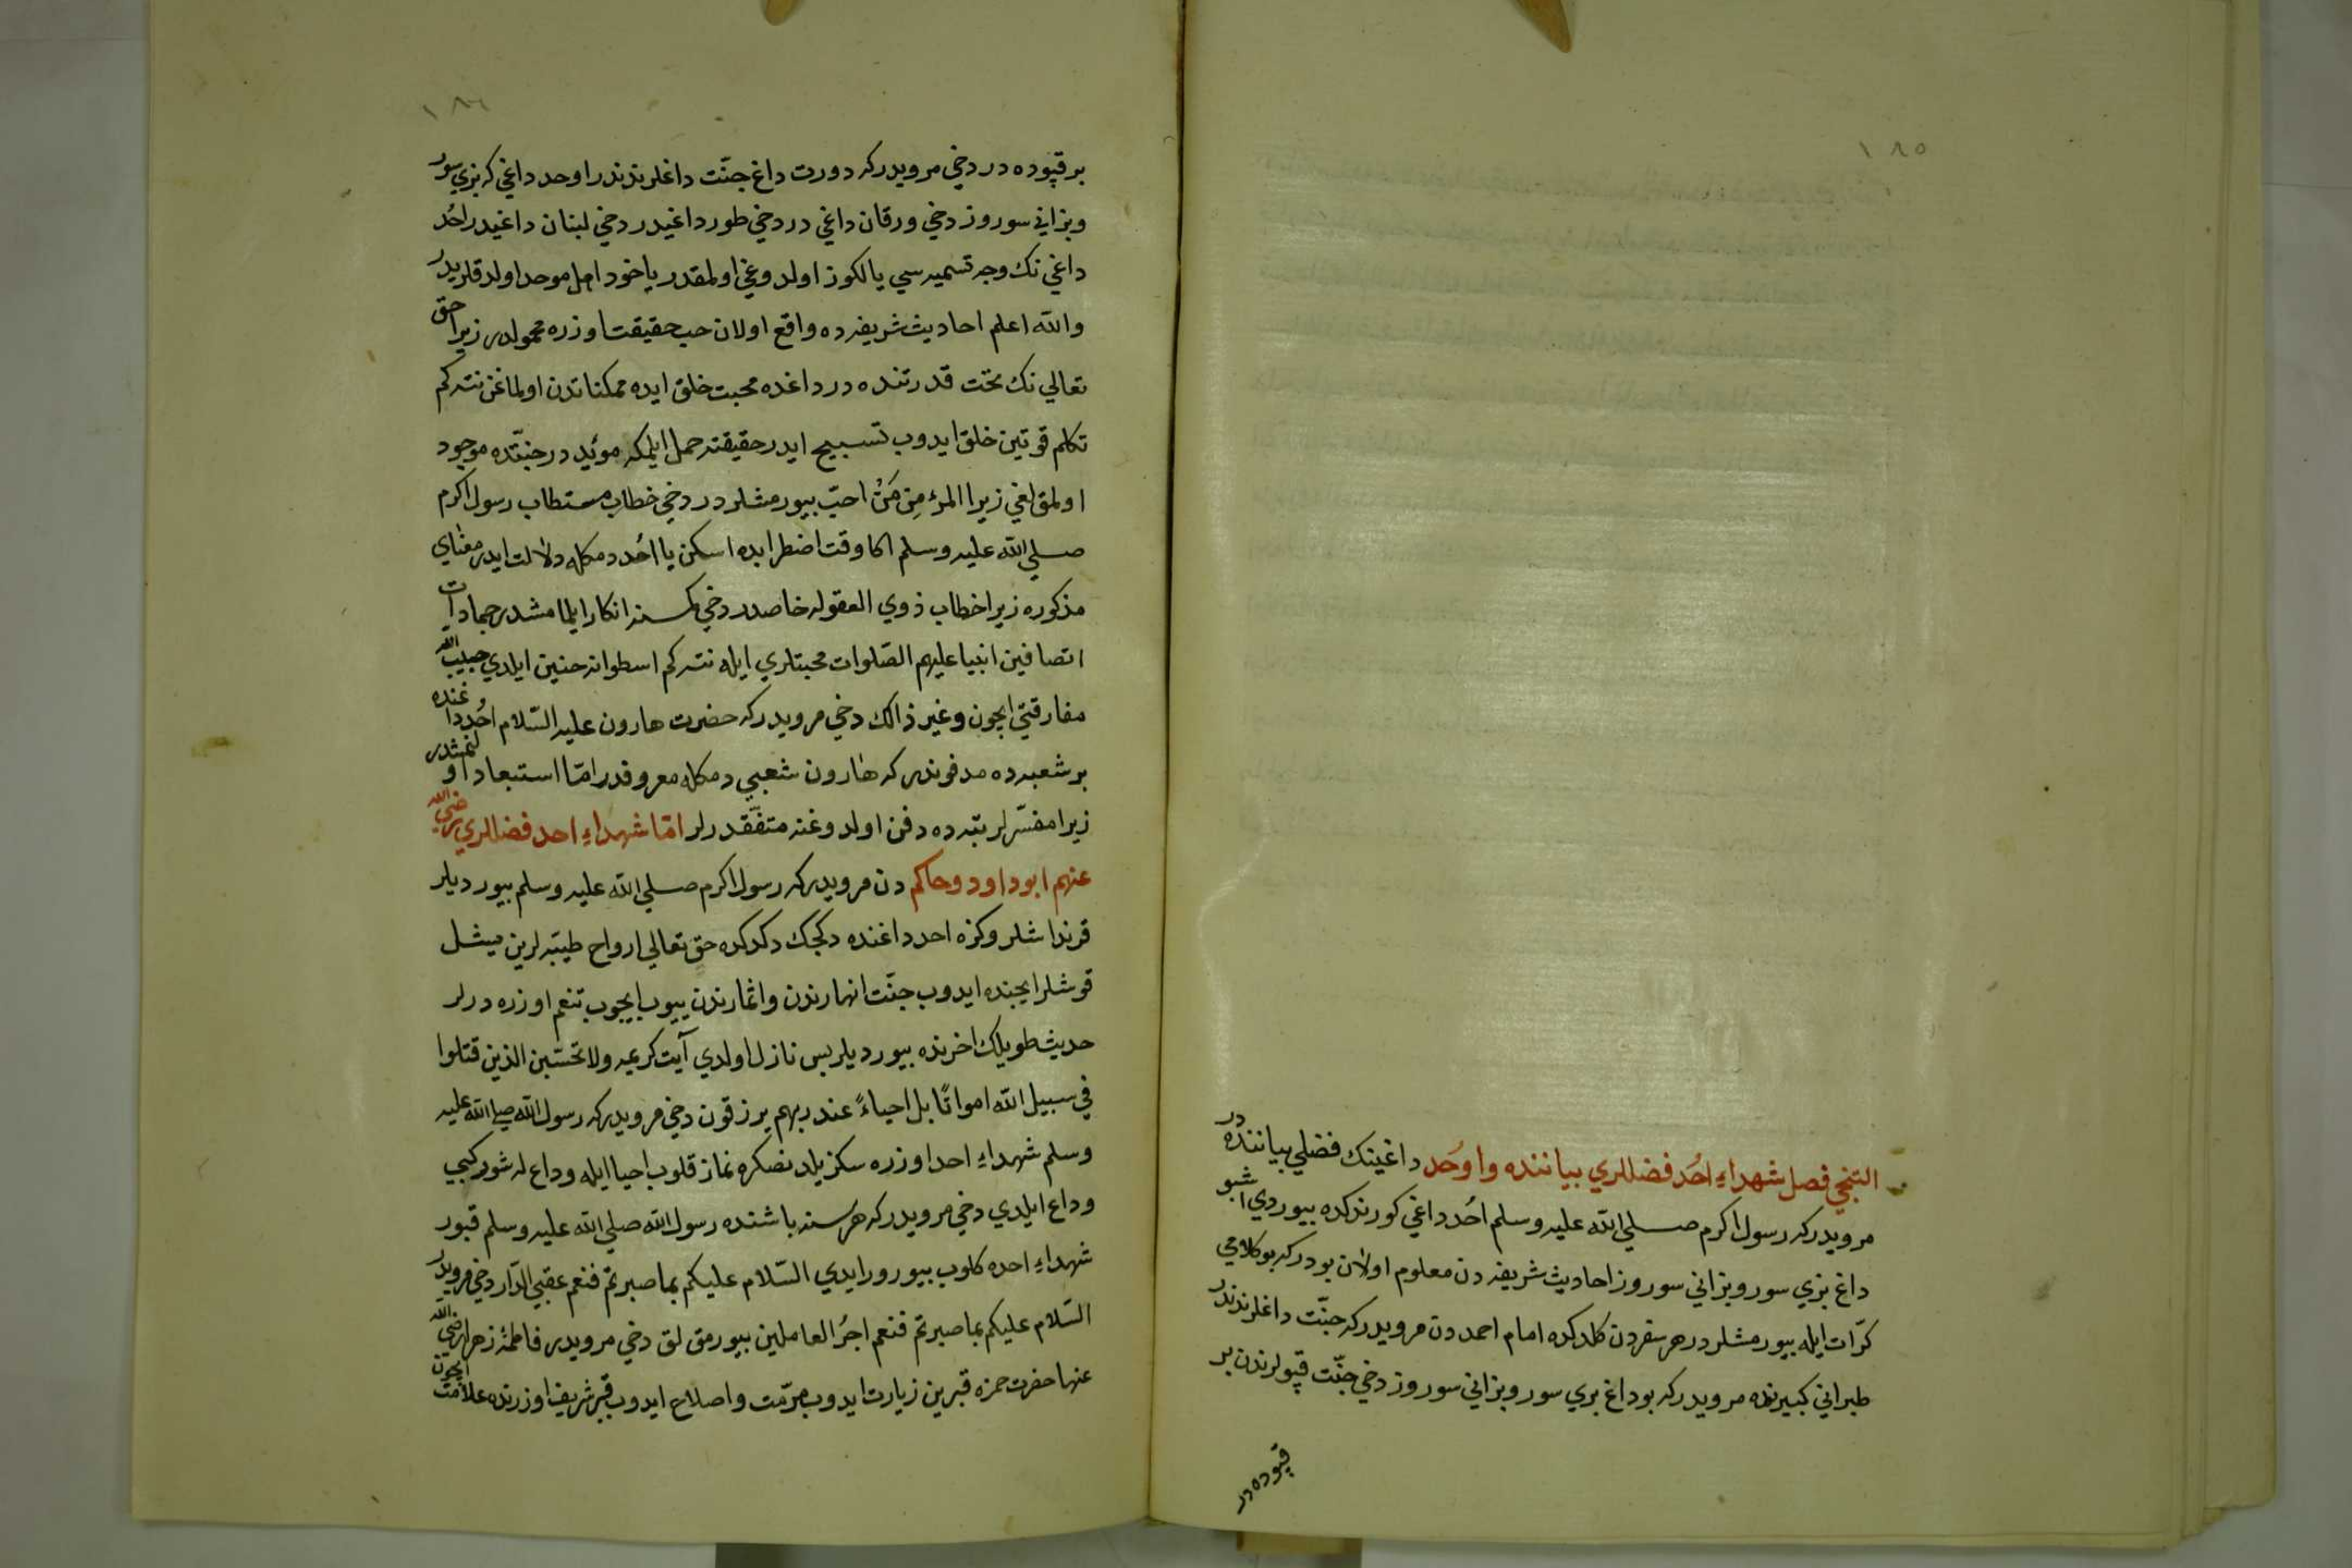 ١٨٥
التنجي فصل شهداء احُد فضللري بياننده واوحُد داغينك فضلي بياننده در
مرويدركه رسول اكرم صلي الله عليه وسلم احُد داغي كورندكده بيوردي اشبو
داغ بزي سور وبزاني سوروز احاديث شريفه دن معلوم اولان بودركه بوكلامي
كرّات ايله بيورمشلردر هر سفردن كلدكده امام احمد دن مرويدركه جنّت داغلرندندر
طبراني كبيرنده مرويدركه بوداغ بزي سور وبزاني سوروز دخي جنّت قپولرندن بر
قپوده در
١٨٦
بر قپوده در دخي مرويدركه دورت داغ جنّت داغلرندندر اوحد داغي كه بزي سور
وبزاني سوروز دخي ورقان داغي در دخي طور داغيدر دخي لبنان داغيدر احُد
داغي نك وجه تسميه سي يالكوز اولدوغي اولمقدر ياخود اهل موحد اولدقلريدر
والله اعلم احاديث شريفه ده واقع اولان حب حقيقت اوزره محمولدر زيرا حق
تعالي نك تحت قدرتنده در داغده محبت خلق ايده ممكناتدن اولماغن نته كم
تكلم قوتين خلق ايدوب تسبيح ايدر حقيقته حمل ايلمكه مؤيد در جنّتده موجود
اولمق لغي زيرا المرء مِن مَنْ احبّ بيورمشلردر دخي خطاب مستطاب رسول اكرم
صلي الله عليه وسلم اكا وقت اضطرابده اسكن يا احُد دمكله دلالت ايدر معناي
مذكوره زيرا خطاب ذوي العقوله خاصدر دخي كمسنه انكار ايلمامشدر جمادات
اتصافين انبيا عليهم الصّلوات محبتلري ايله نته كم اسطوانه حنين ايلدي حبيب الله
مفارقتي ايچون وغير ذالك دخي مرويدركه حضرت هارون عليه السّلام احُد داغنده
بر شعبه ده مدفوندر كه هارون شعبي دمكله معروفدر امّا استبعاد اولنمشدر
زيرا مفسّرلر تيه ده دفن اولدوغنه متفّقدرلر امّا شهداء احد فضللري رضي الله
عنهم ابو داود وحاكم دن مرويدركه رسول اكرم صلي الله عليه وسلم بيورديلر
قرنداشلروكزه احد داغنده دكجك دكدكده حق تعالي ارواح طيّبه لرين يشل
قوشلر ايچنده ايدوب جنّت انهارندن واثمارندن ييوب ايچوب تنعم اوزره درلر
حديث طويلك اخرنده بيورديلر بس نازل اولدي آيت كريمه ولا تحسّبن الذين قتلوا
في سبيل الله امواتًا بل احياءً عند ربهم يرزقون دخي مرويدركه رسول الله صلي الله عليه
وسلم شهداء احد اوزره سكز يلدنصكره نماز قلوب احيا ايله وداع له شور كبي
وداع ايلدي دخي مرويدركه هر سنه باشنده رسول الله صلي الله عليه وسلم قبور
شهداء احده كلوب بيورور ايدي السّلام عليكم بما صبرتم فنعم عقبي الدّار دخي مرويدر
السّلام عليكم بما صبرتم فنعم اجرُ العاملين بيورمق لق دخي مرويدر فاطمهٔ زهرا رضي الله
عنها حضرت حمزه قبرين زيارت ايدوب مرمّت واصلاح ايدوب قبر شريف اوزرنده علامت ايچون